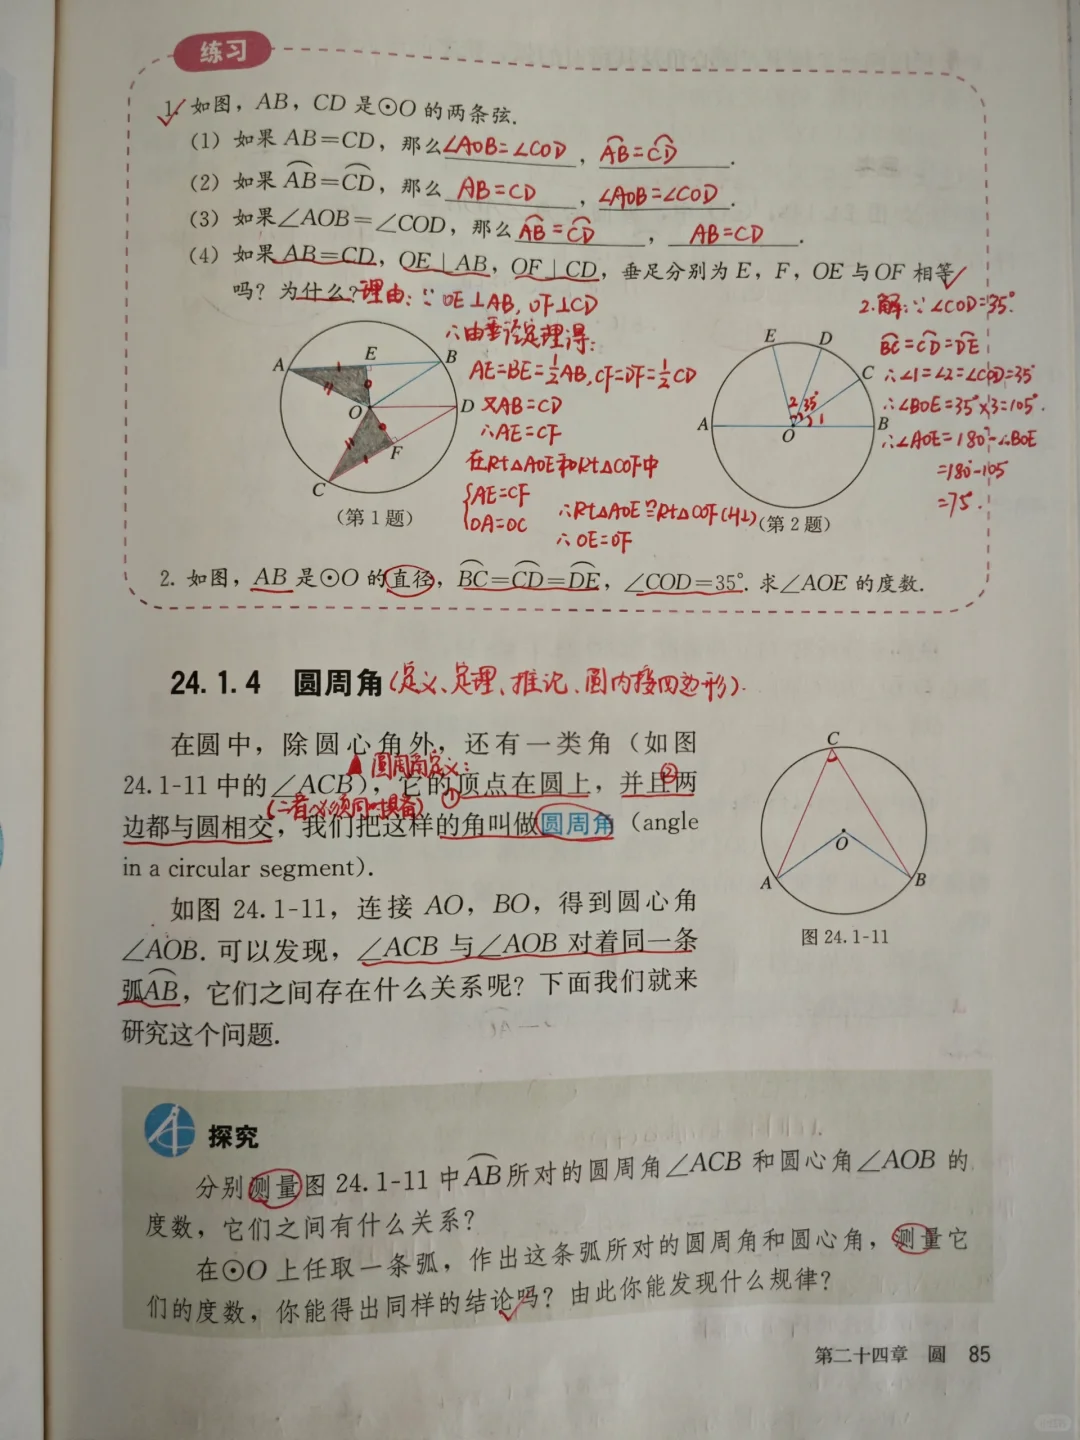 练习
1. 如图，AB，CD 是⊙O 的两条弦.
(1) 如果 AB=CD，那么 ∠AOB=∠COD ， A͡B=C͡D .
(2) 如果 A͡B=C͡D，那么 AB=CD ， ∠AOB=∠COD .
(3) 如果∠AOB=∠COD，那么 A͡B=C͡D ， AB=CD .
(4) 如果 AB=CD，OE⊥AB，OF⊥CD，垂足分别为 E，F，OE 与 OF 相等
吗？为什么？理由：∵ OE⊥AB, OF⊥CD
∴由垂径定理得：
AE=BE=½AB, CF=DF=½CD
又AB=CD
∴AE=CF
在Rt△AOE和Rt△COF中
{AE=CF
OA=OC
∴Rt△AOE≌Rt△COF(HL)
∴ OE=OF
A E B O D F C
(第 1 题)
2.解：∵∠COD=35°
B͡C=C͡D=D͡E
∴∠1=∠2=∠COD=35°
∴∠BOE=35°×3=105°.
∴∠AOE=180°-∠BOE
=180°-105
=75°.
E D C A O B 2 35° 1
(第 2 题)
2. 如图，AB 是⊙O 的直径，B͡C=C͡D=D͡E，∠COD=35°. 求∠AOE 的度数.
24.1.4 圆周角(定义、定理、推论、圆内接四边形).
在圆中，除圆心角外，还有一类角（如图
▲ 圆周角定义：
24.1-11 中的∠ACB），它的①顶点在圆上，并且②两
(二者必须同时具备)
边都与圆相交，我们把这样的角叫做圆周角（angle
in a circular segment）.
如图 24.1-11，连接 AO，BO，得到圆心角
∠AOB. 可以发现，∠ACB 与∠AOB 对着同一条
弧A͡B，它们之间存在什么关系呢？下面我们就来
研究这个问题.
C O A B
图 24.1-11
探究
分别测量图 24.1-11 中A͡B所对的圆周角∠ACB 和圆心角∠AOB 的
度数，它们之间有什么关系？
在⊙O 上任取一条弧，作出这条弧所对的圆周角和圆心角，测量它
们的度数，你能得出同样的结论吗？由此你能发现什么规律？
第二十四章 圆 85